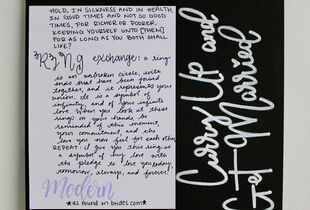 HOLD, IN SICKNESS AND IN HEALTH,
IN GOOD TIMES AND NOT SO GOOD
TIMES, FOR RICHER OR POORER,
KEEPING YOURSELF UNTO [THEM]
FOR AS LONG AS YOU BOTH SHALL
LIKE?
RING exchange: a ring
is an unbroken circle, with
ends that have been joined
together, and it represents your
union. It is a symbol of
infinity, and of your infinite
love. When you look at these
rings on your hands, be
reminded of this moment,
your commitment, and the
love you now feel for each other.
REPEAT: I give you this ring as
a symbol of my love with
the pledge to love you today,
tomorrow, always, and forever.
Modern
*as found on brides.com*
Curry Up and
Get Married